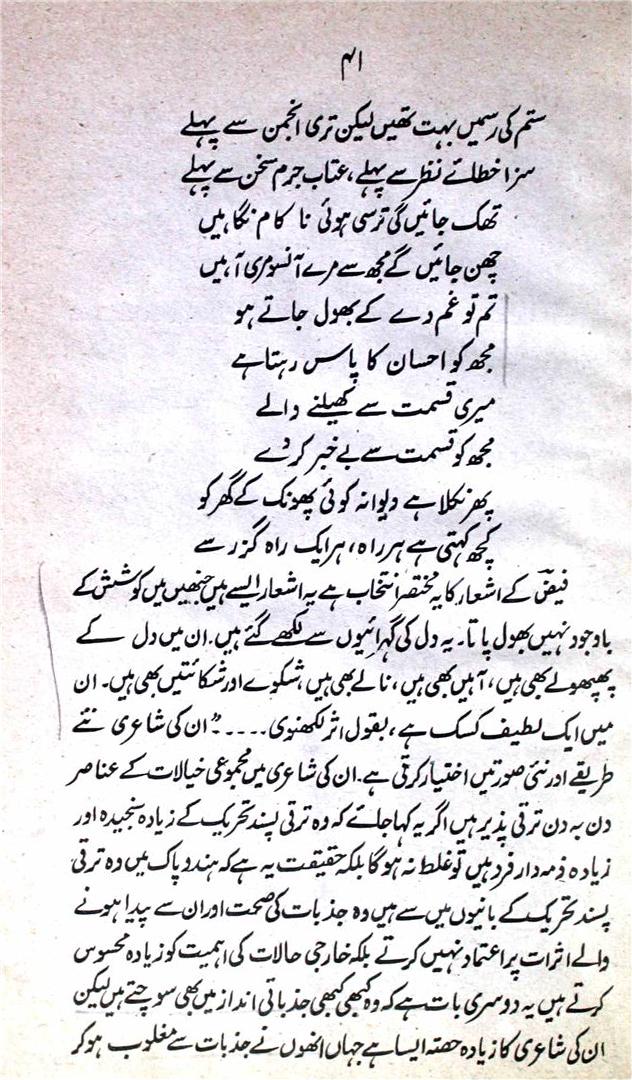 ۴۱
ستم کی رسمیں بہت تھیں لیکن تری انجمن سے پہلے
سزا خطائے نظر سے پہلے، عتاب جرم سخن سے پہلے
تھک جائیں گی ترسی ہوئی نا کام نگاہیں
چھن جائیں گے مجھ سے مرے آنسو مری آہیں
تم تو غم دے کے بھول جاتے ہو
مجھ کو احسان کا پاس رہتا ہے
میری قسمت سے کھیلنے والے
مجھ کو قسمت سے بے خبر کر دے
پھر نکلا ہے دیوانہ کوئی پھونک کے گھر کو
کچھ کہتی ہے ہر راہ، ہر ایک راہ گزر سے
فیضؔ کے اشعار کا یہ مختصر انتخاب ہے یہ اشعار ایسے ہیں جنھیں میں کوشش کے
باوجود نہیں بھول پاتا۔ یہ دل کی گہرائیوں سے لکھے گئے ہیں۔ ان میں دل کے
پھپھولے بھی ہیں، آہیں بھی ہیں، نالے بھی ہیں، شکوے اور شکائتیں بھی ہیں۔ ان
میں ایک لطیف کسک ہے، بقول اثر لکھنوی ....." ان کی شاعری نئے
طریقے اور نئی صورتیں اختیار کرتی ہے۔ ان کی شاعری میں مجموعی خیالات کے عناصر
دن بہ دن ترقی پذیر ہیں اگر یہ کہا جائے کہ وہ ترقی پسند تحریک کے زیادہ سنجیدہ اور
زیادہ ذمہ دار فرد ہیں تو غلط نہ ہوگا بلکہ حقیقت یہ ہے کہ ہند و پاک میں وہ ترقی
پسند تحریک کے بانیوں میں سے ہیں وہ جذبات کی صحت اور ان سے پیدا ہونے
والے اثرات پر اعتماد نہیں کرتے بلکہ خارجی حالات کی اہمیت کو زیادہ محسوس
کرتے ہیں یہ دوسری بات ہے کہ وہ کبھی کبھی جذباتی انداز میں بھی سوچتے ہیں لیکن
ان کی شاعری کا زیادہ حصّہ ایسا ہے جہاں انھوں نے جذبات سے مغلوب ہو کر